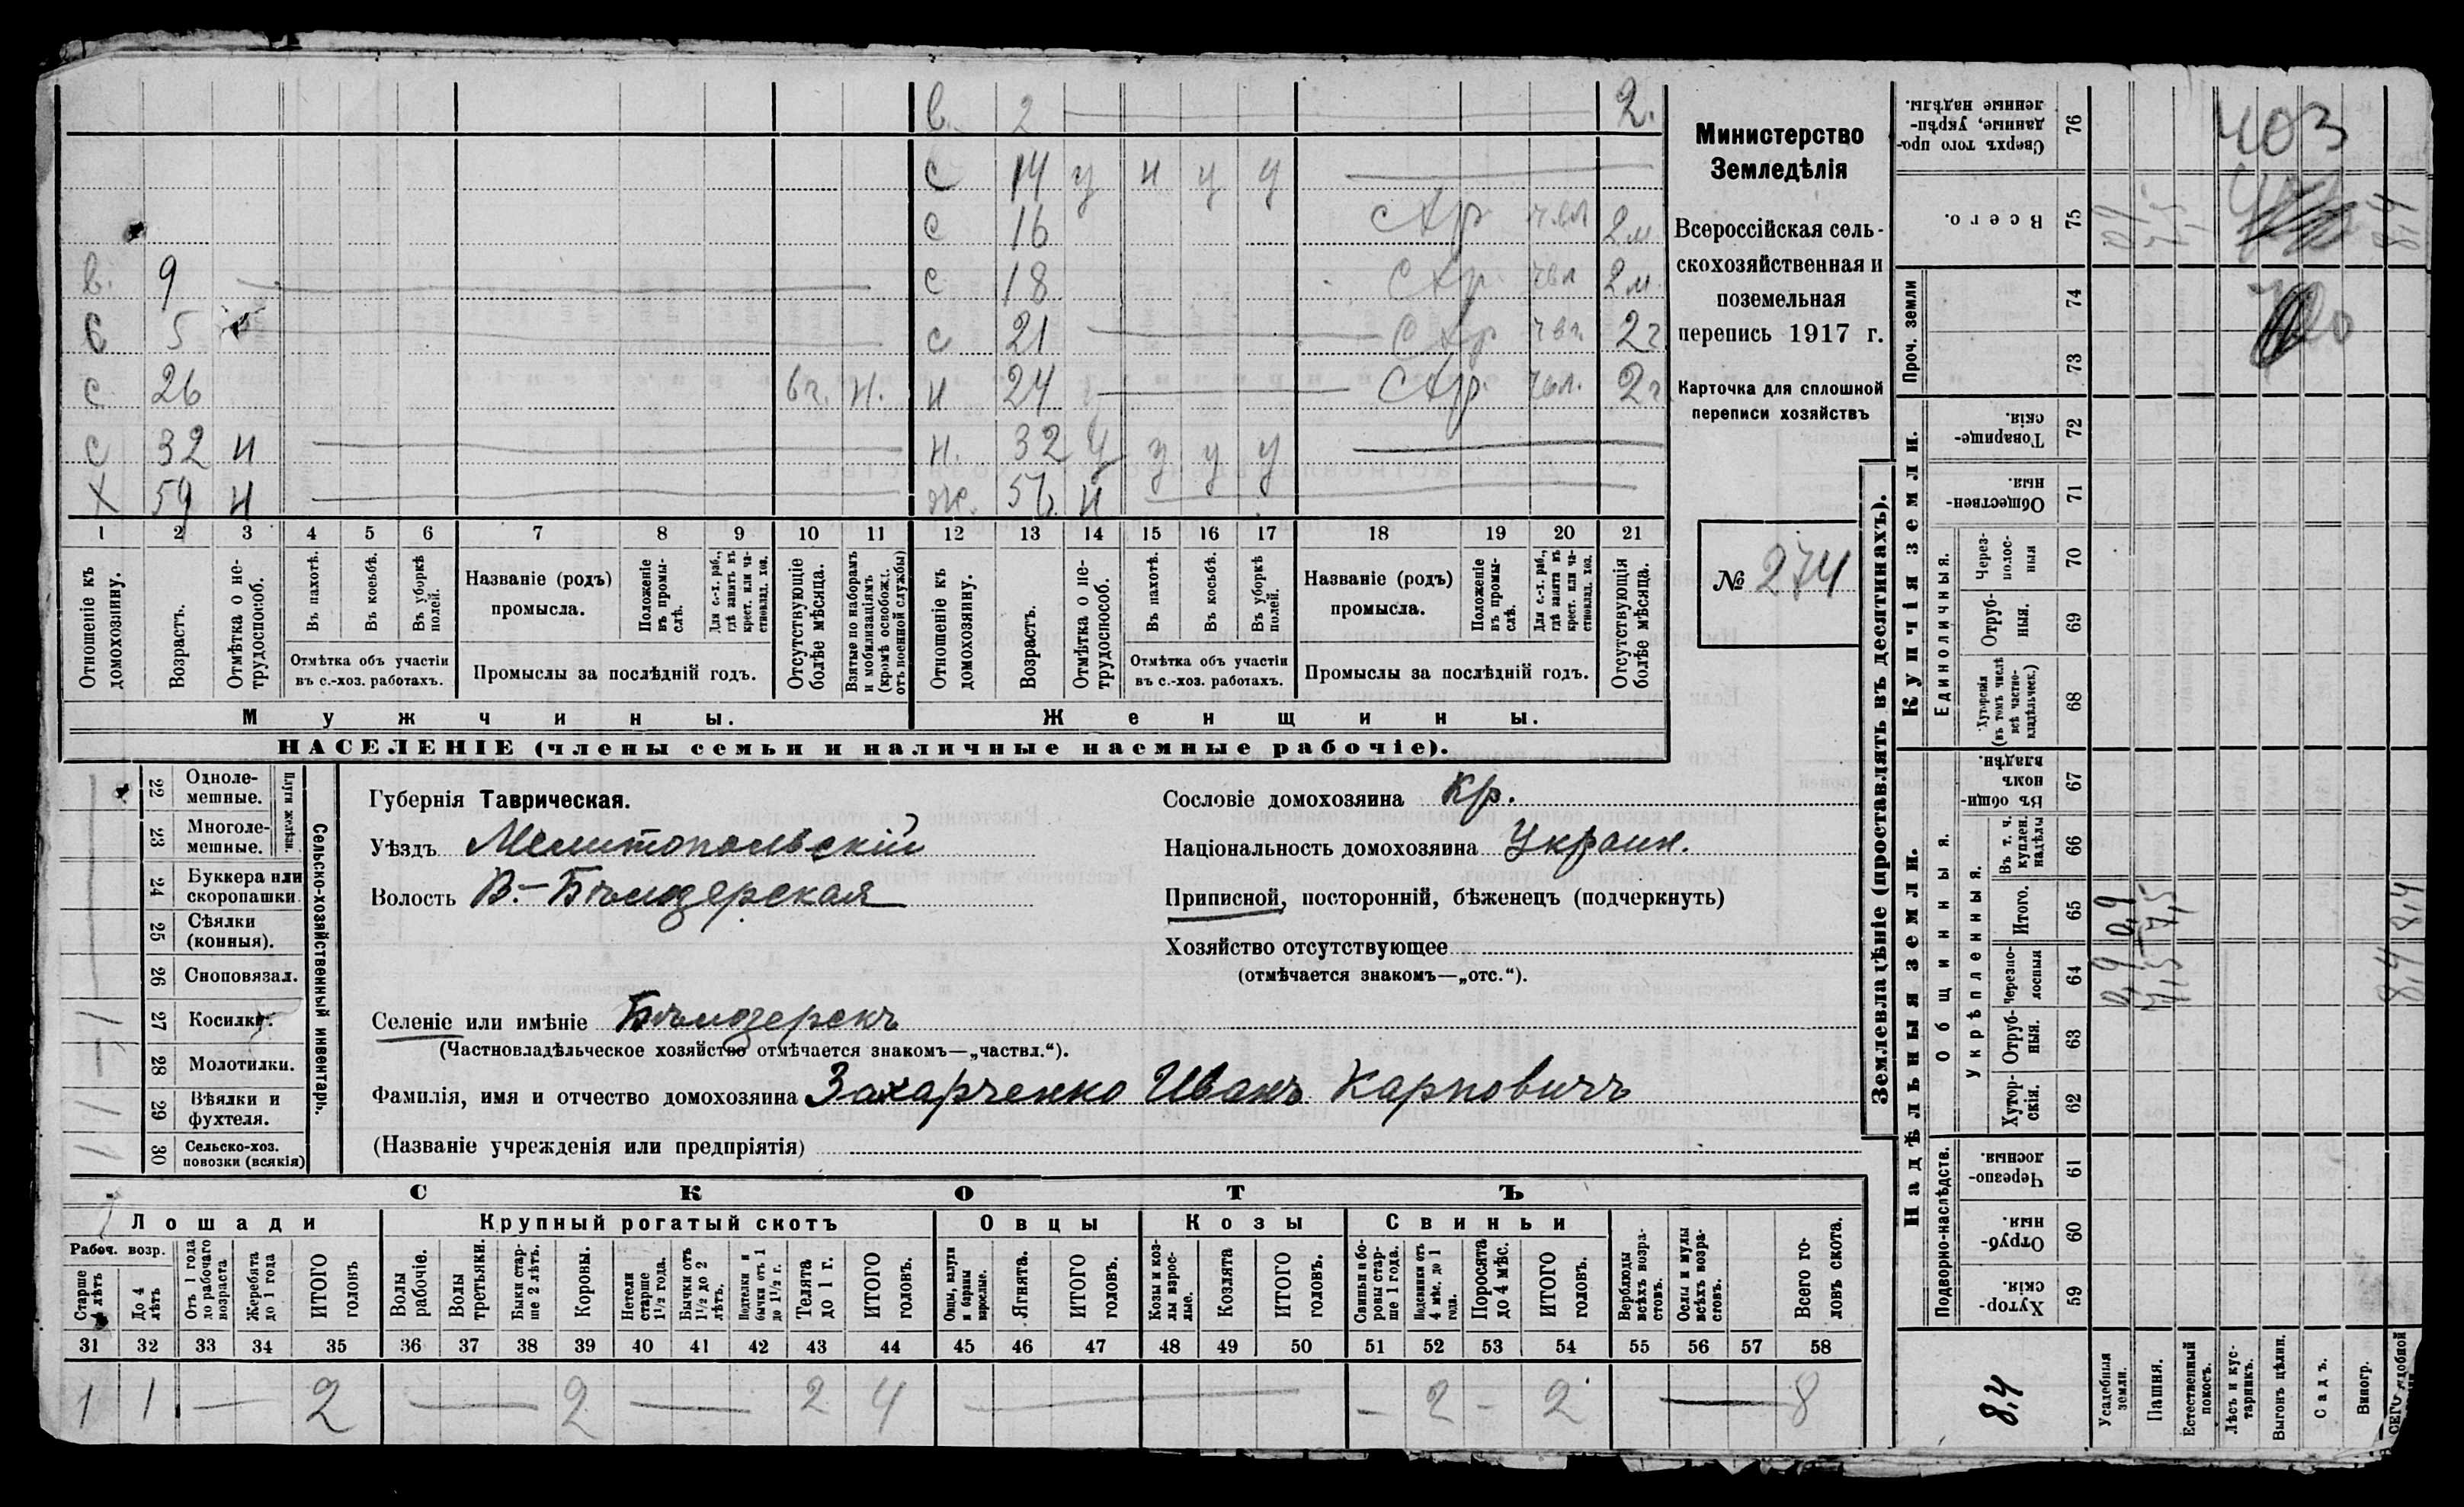 в. 2 2.
с 14 у н у у
с 16 схр чвл 2м
в. 9 с 18 схр чвл 2м
в 5 с 21 схр 2г
с 26 6г. н. н 24 схр. чвл. 2г
с 32 н н. 32 у у у у
х 59 н ж. 56 н
1 2 3 4 5 6 7 8 9 10 11 12 13 14 15 16 17 18 19 20 21
Отношеніе къ домохозяину.
Возрастъ.
Отмѣтка о нетрудоспособ.
Въ пахотѣ.
Въ косьбѣ.
Въ уборкѣ полей.
Отмѣтка объ участіи
въ с.-хоз. работахъ.
Названіе (родъ)
промысла.
Положеніе въ промыслѣ.
Для с.-х. раб., гдѣ занятъ въ крест. или частновлад. хоз.
Промыслы за послѣдній годъ.
Отсутствующіе болѣе мѣсяца.
Взятые по наборамъ и мобилизаціямъ (кромѣ освобожд. отъ военной службы)
Отношеніе къ домохозяину.
Возрастъ.
Отмѣтка о нетрудоспособ.
Въ пахотѣ.
Въ косьбѣ.
Въ уборкѣ полей.
Отмѣтка объ участіи
въ с.-хоз. работахъ.
Названіе (родъ)
промысла.
Положеніе въ промыслѣ.
Для с.-х. раб., гдѣ занята въ крест. или частновлад. хоз.
Промыслы за послѣдній годъ.
Отсутствующія болѣе мѣсяца.
Мужчины. Женщины.
НАСЕЛЕНІЕ (члены семьи и наличные наемные рабочіе).
Министерство
Земледѣлія
Всероссійская сель-
скохозяйственная и
поземельная
перепись 1917 г.
Карточка для сплошной
переписи хозяйствъ
№ 274
Сельско-хозяйственный инвентарь.
Плуги желѣзн.
22 Одноле-
мешные.
23 Многоле-
мешные.
24 Буккера или
скоропашки.
25 Сѣялки
(конныя).
26 Сноповязал.
27 Косилки. 1
28 Молотилки.
29 Вѣялки и
фухтеля. 1
30 Сельско-хоз.
повозки (всякія) 1
Губернія Таврическая.
Уѣздъ Мелитопольскій
Волость В.-Бѣлозерская
Селеніе или имѣніе Бѣлозерскъ
(Частновладѣльческое хозяйство отмѣчается знакомъ—„частвл.“).
Фамилія, имя и отчество домохозяина Захарченко Иванъ Карповичъ
(Названіе учрежденія или предпріятія)
Сословіе домохозяина Кр.
Національность домохозяина Украин.
Приписной, посторонній, бѣженецъ (подчеркнуть)
Хозяйство отсутствующее
(отмѣчается знакомъ—„отс.“).
СКОТЪ
Лошади Крупный рогатый скотъ Овцы Козы Свиньи
Рабоч. возр.
Старше 4 лѣтъ
До 4 лѣтъ
Отъ 1 года до рабочаго возраста
Жеребята до 1 года
ИТОГО головъ
Волы рабочіе.
Волы третьяки.
Быки старше 2 лѣтъ.
Коровы.
Нетели старше 1½ года.
Бычки отъ 1½ до 2 лѣтъ.
Подтелки и бычки отъ 1 до 1½ г.
Телята до 1 г.
ИТОГО головъ.
Овцы, валухи и бараны взрослые.
Ягнята.
ИТОГО головъ.
Козы и козлы взрослые.
Козлята
ИТОГО головъ.
Свиньи и боровы старше 1 года.
Подсвинки отъ 4 мѣс. до 1 года.
Поросята до 4 мѣс.
ИТОГО головъ.
Верблюды всѣхъ возрастовъ.
Ослы и мулы всѣхъ возрастовъ.
Всего головъ скота.
31 32 33 34 35 36 37 38 39 40 41 42 43 44 45 46 47 48 49 50 51 52 53 54 55 56 57 58
1 1 — 2 — 2 — 2 4 — — 2 – 2 — 8
Землевладѣніе (проставлять въ десятинахъ).
Надѣльныя земли. Купчія земли. Проч. земли
Подворно-наслѣдств.
Общинныя.
Укрѣпленныя.
Единоличныя.
Сверхъ того проданные, укрѣпленные надѣлы. 76
Всего. 75
74
73
Товарищескія. 72
Общественныя. 71
Черезполосныя 70
Отрубныя. 69
Хуторскія (въ томъ числѣ всѣ частновладѣльческ.) 68
Въ общинномъ владѣн. 67
Въ т. ч. куплен. надѣлы 66
Итого. 65
Черезполосныя 64
Отрубныя. 63
Хуторскія. 62
Черезполосныя. 61
Отрубныя. 60
Хуторскія 59
8,4
Усадебныя земли. 0,9 0,9 0,9
Пашня. 7,5 7,5 7,5
Естественный покосъ.
Лѣсъ и кустарникъ.
Выгонъ цѣлин.
Садъ.
Виногр.
8,4 8,4 8,4
403